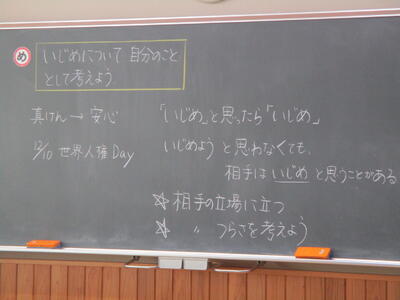 め
いじめについて 自分のこと
として考えよう
真けん→安心
12/10 世界人権Day
「いじめ」と思ったら「いじめ」
いじめようと思わなくても、
相手はいじめと思うことがある
☆相手の立場に立つ
☆ 〃 つらさを考えよう